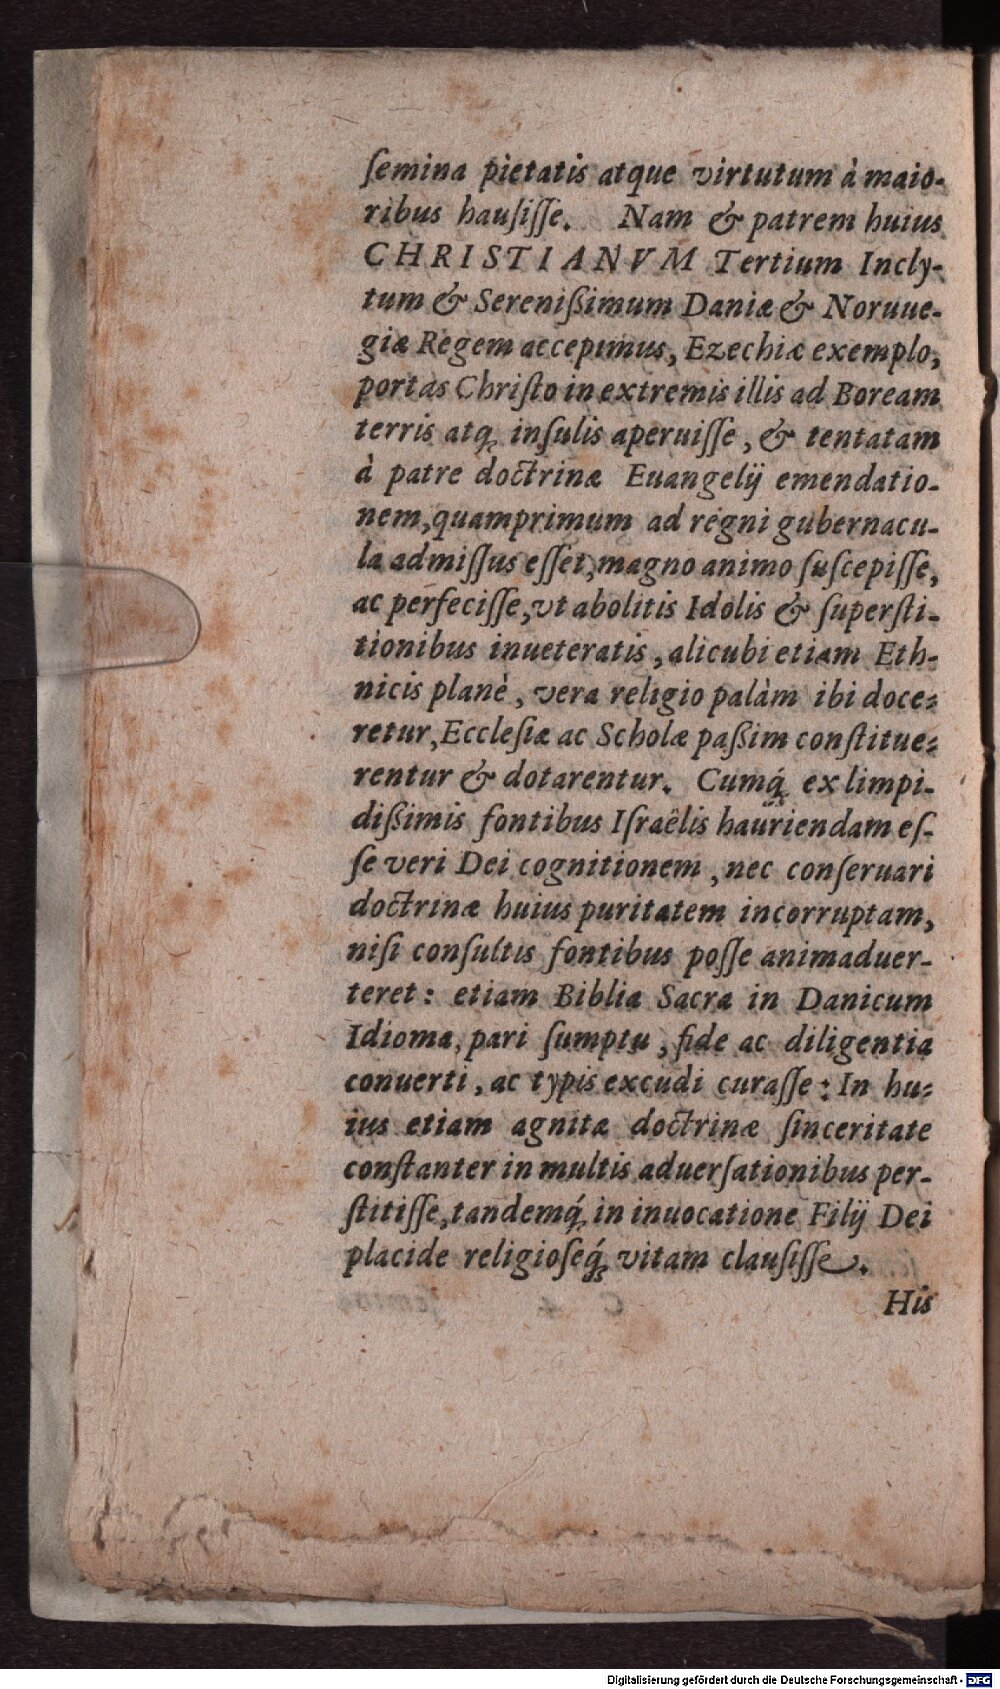 ſemina pietatis atque virtutum à maio-
ribus hauſiſſe. Nam & patrem huius
CHRISTIANVM Tertium Incly-
tum & Sereniſſimum Daniæ & Noruue-
giæ Regem accepimus, Ezechiæ exemplo,
portas Chriſto in extremis illis ad Boream
terris atq; inſulis aperuiſſe, & tentatam
à patre doctrinæ Euangelij emendatio-
nem, quamprimum ad regni gubernacu-
la admiſſus eſſet, magno animo ſuſcepiſſe,
ac perfeciſſe, vt abolitis Idolis & ſuperſti-
tionibus inueteratis, alicubi etiam Eth-
nicis planè, vera religio palàm ibi doce-
retur, Eccleſiæ ac Scholæ paßim conſtitue-
rentur & dotarentur. Cumq́; ex limpi-
dißimis fontibus Iſraëlis hauriendam eſ-
ſe veri Dei cognitionem, nec conſeruari
doctrinæ huius puritatem incorruptam,
niſi conſultis fontibus poſſe animaduer-
teret: etiam Biblia Sacra in Danicum
Idioma, pari ſumptu, fide ac diligentia
conuerti, ac typis excudi curaſſe: In hu-
ius etiam agnitæ doctrinæ ſinceritate
conſtanter in multis aduerſationibus per-
ſtitiſſe, tandemq́; in inuocatione Filij Dei
placide religioſeq́; vitam clauſiſſe.
His
Digitalisierung gefördert durch die Deutsche Forschungsgemeinschaft - DFG